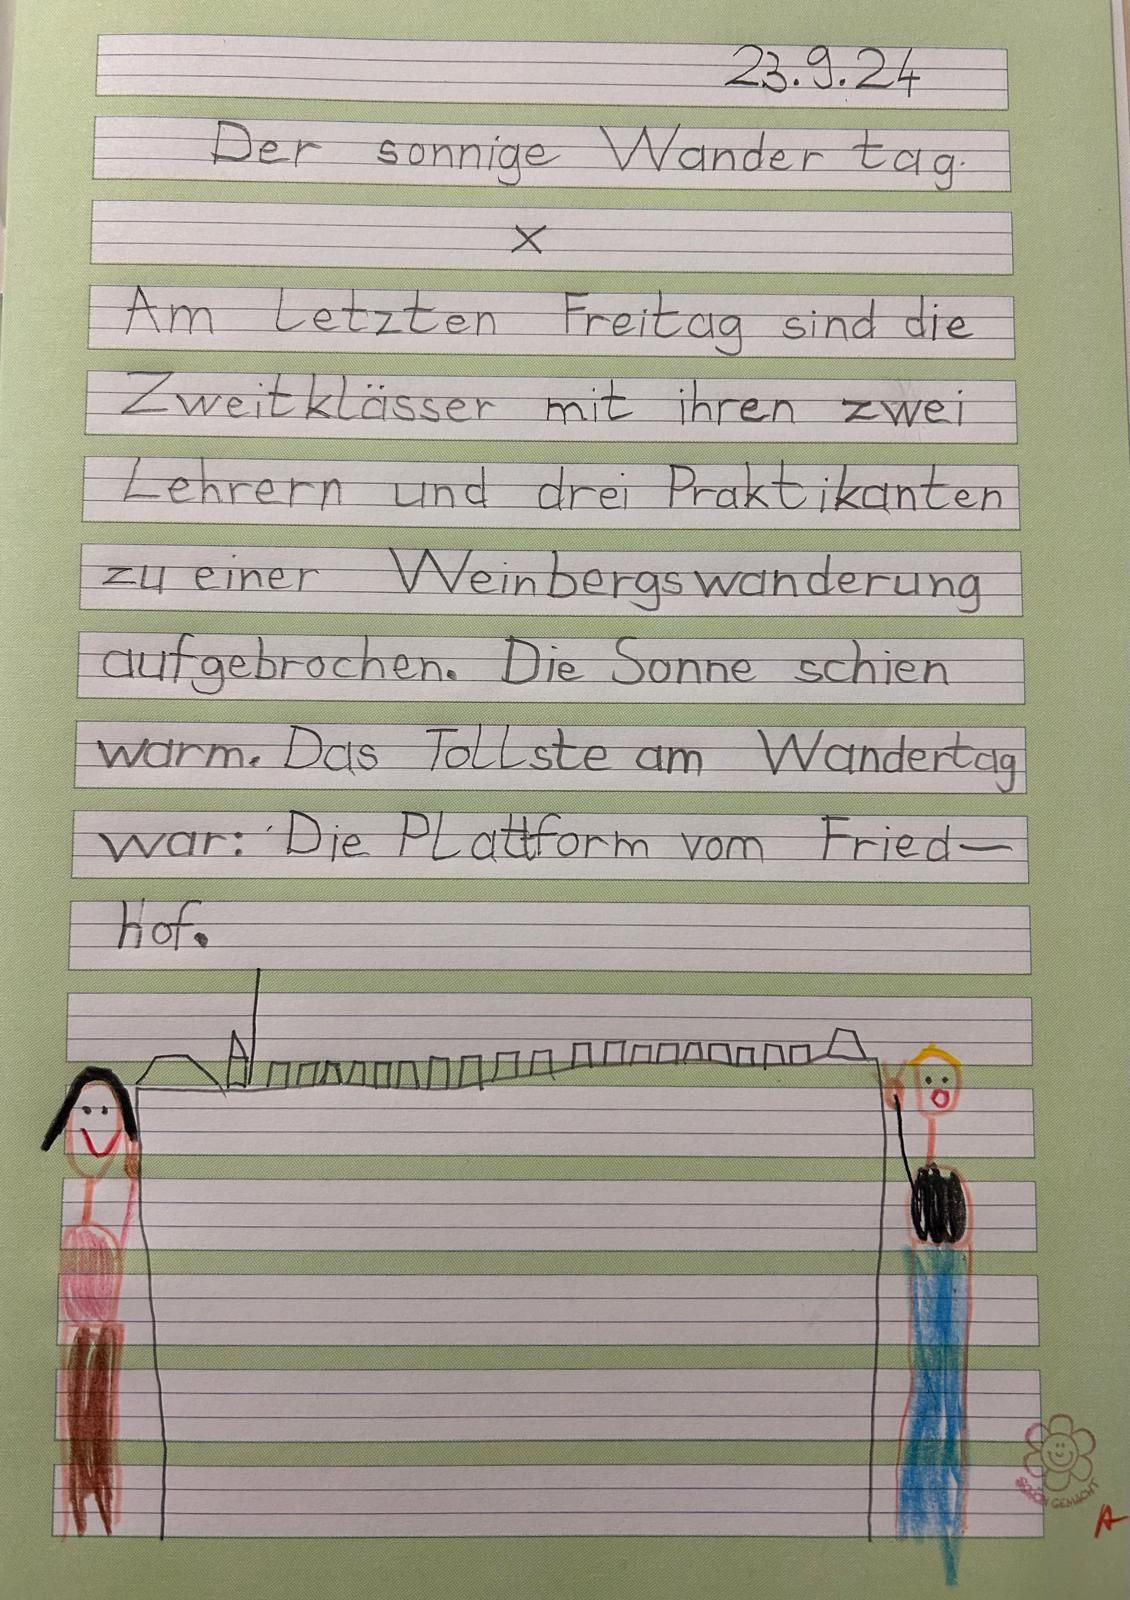 23.9.24
Der sonnige Wander tag.
x
Am Letzten Freitag sind die
Zweitklässer mit ihren zwei
Lehrern und drei Praktikanten
zu einer Weinbergswanderung
aufgebrochen. Die Sonne schien
warm. Das Tollste am Wandertag
war: Die Plattform vom Fried-
hof.
SCHÖN GEMACHT
A